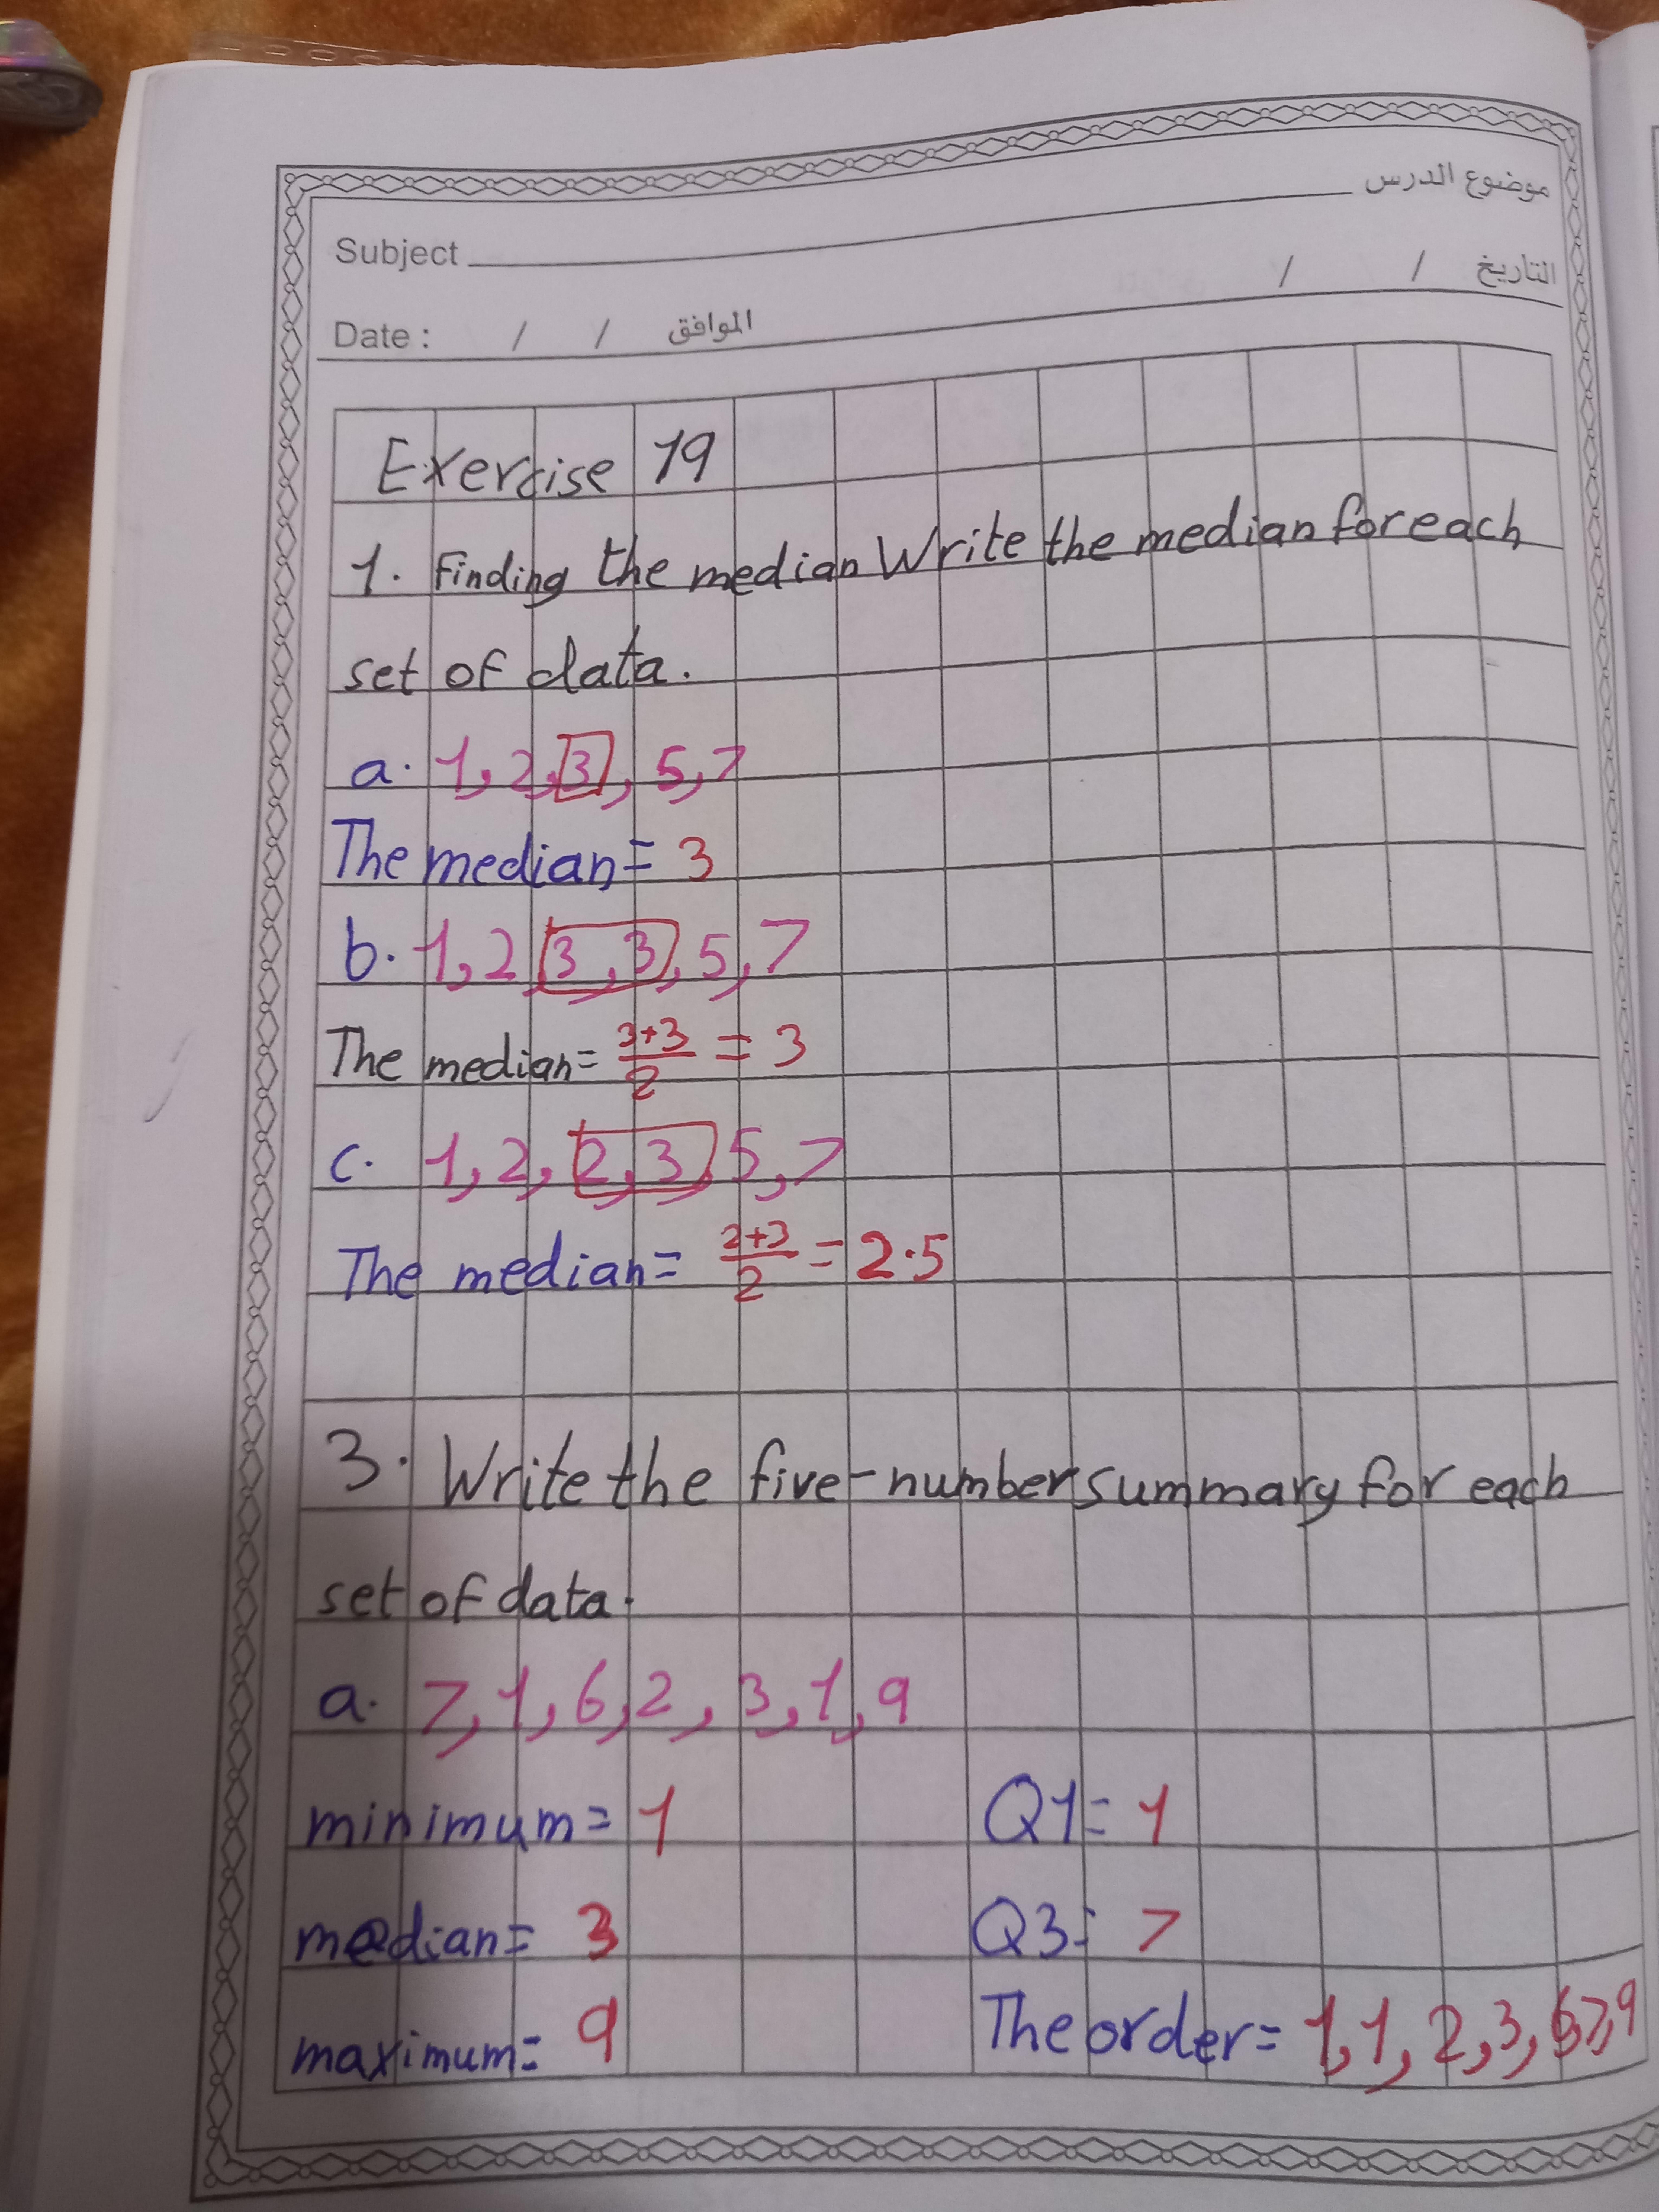 موضوع الدرس
Subject
التاريخ / /
Date : / / الموافق
Exercise 19
1. Finding the median Write the median for each
set of data.
a. 1, 2, 3, 5, 7
The median = 3
b. 1, 2, 3, 3, 5, 7
The median = 3+3/2 = 3
c. 1, 2, 2, 3, 5, 7
The median = 2+3/2 = 2.5
3. Write the five-number summary for each
set of data.
a. 7, 1, 6, 2, 3, 1, 9
minimum = 1 Q1 = 1
median = 3 Q3 = 7
maximum = 9 The order = 1, 1, 2, 3, 6, 7, 9